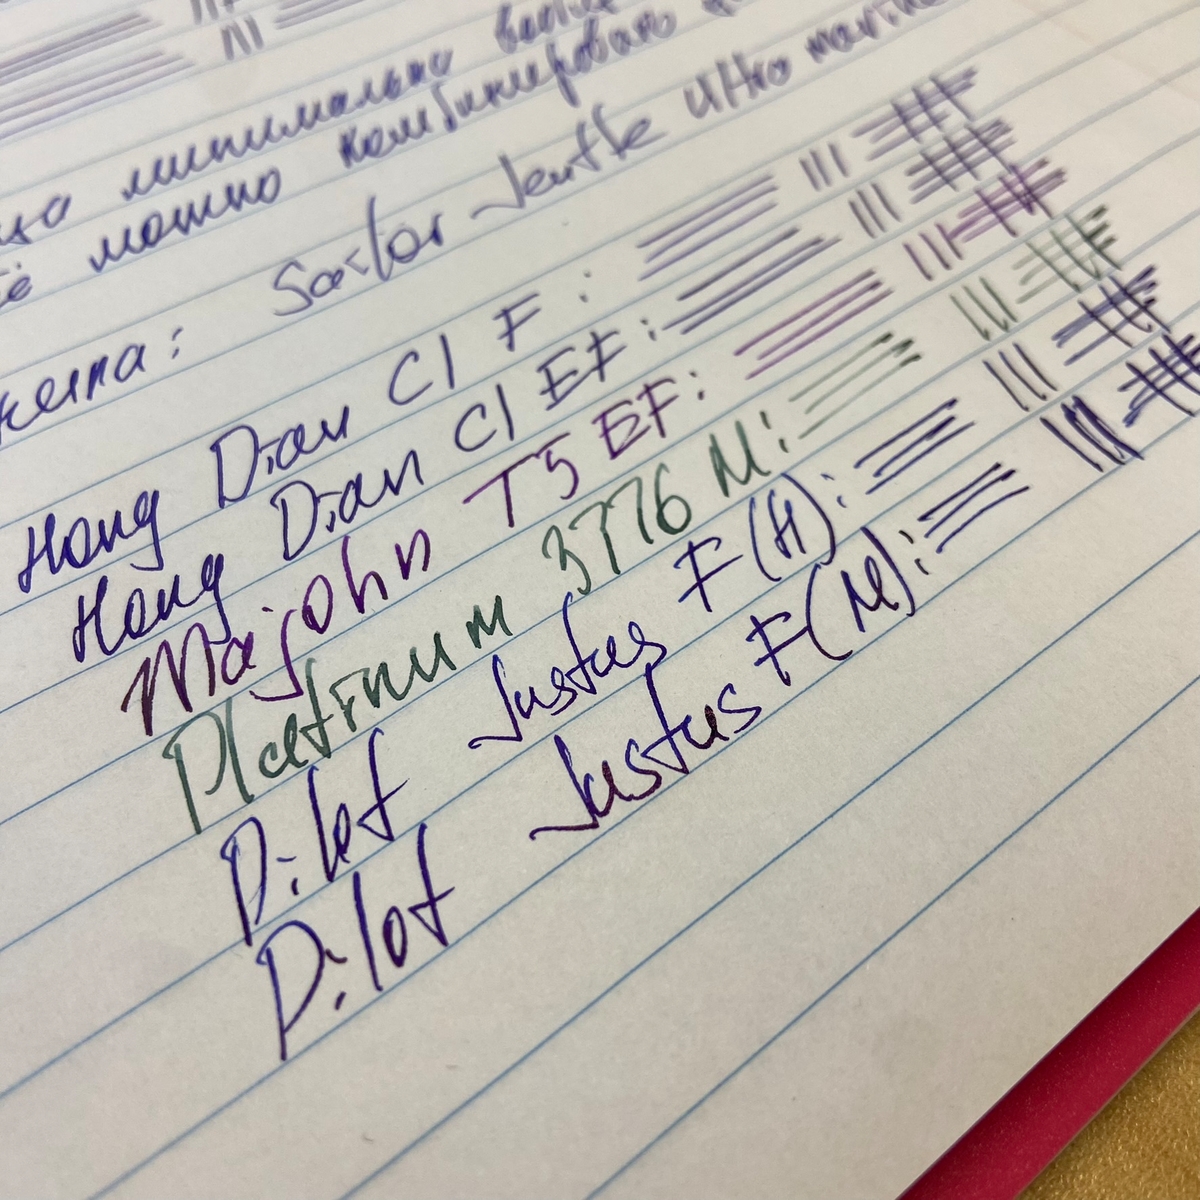 минимально
можно комбинировать
Sailor Jentle ultra marine
Hong Dian C1 F:
Hong Dian C1 EF:
Majohn T5 EF:
Platinum 3776 M:
Pilot Justus F(H):
Pilot Justus F(M):